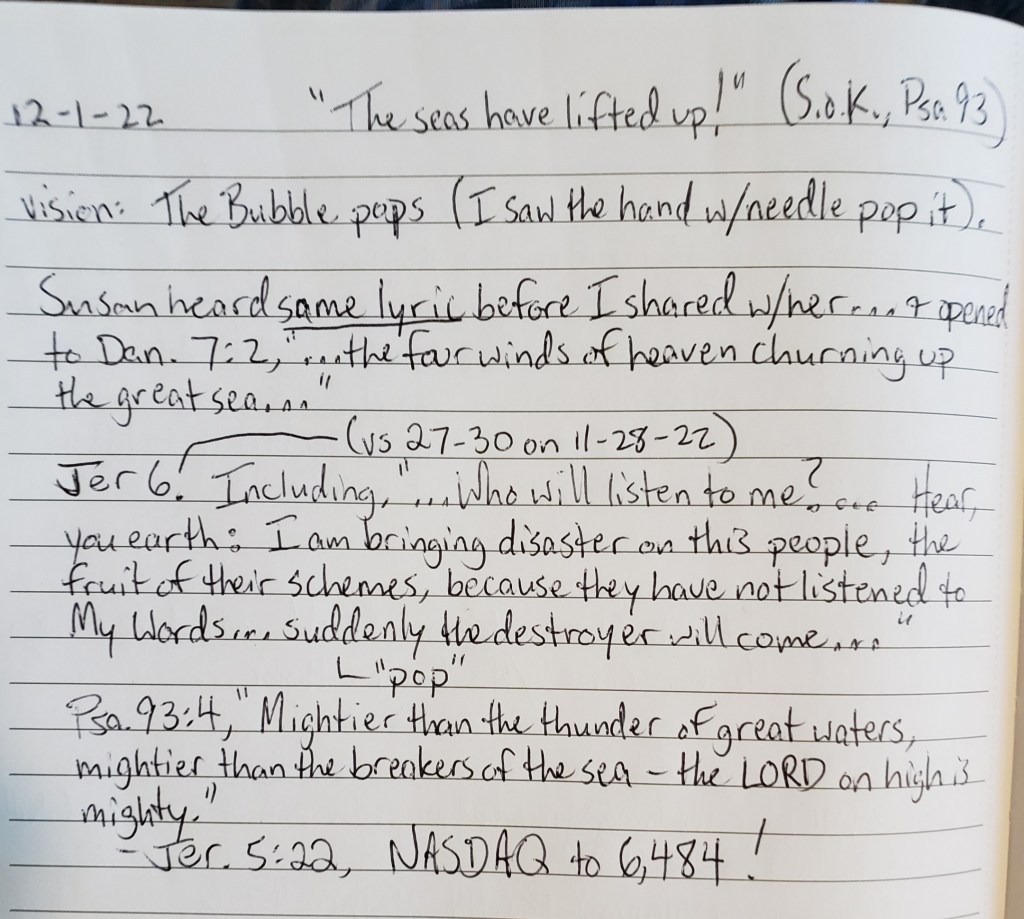 12-1-22 "The seas have lifted up!" (S.o.K., Psa 93)
Vision: The Bubble pops (I saw the hand w/needle pop it).
Susan heard same lyric before I shared w/her.... & opened
to Dan. 7:2, "...the four winds of heaven churning up
the great sea..."
(vs 27-30 on 11-28-22)
Jer 6! Including, "...Who will listen to me? ... Hear,
you earth: I am bringing disaster on this people, the
fruit of their schemes, because they have not listened to
My Words... suddenly the destroyer will come...."
"pop"
Psa. 93:4, "Mightier than the thunder of great waters,
mightier than the breakers of the sea - the LORD on high is
mighty."
- Jer. 5:22, NASDAQ to 6,484!